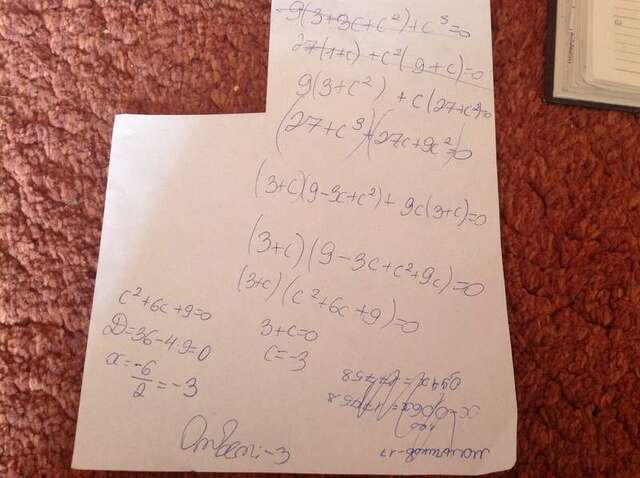 9(3+3c+c²)+c³=0
27(1+c)+c²(9+c)=0
9(3+c²)+c(27+c²)=0
(27+c³)+(27c+9c²)=0
(3+c)(9-3c+c²)+9c(3+c)=0
(3+c)(9-3c+c²+9c)=0
(3+c)(c²+6c+9)=0
c²+6c+9=0
D=36-4·9=0
x=-6/2=-3
3+c=0
c=-3
Ответ:-3